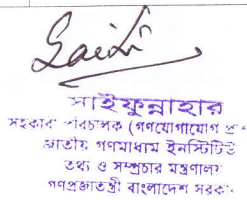 সাইফুন্নাহার
সহকারী পরিচালক (গণযোগাযোগ
জাতীয় গণমাধ্যম ইনস্টিটিউ
তথ্য ও সম্প্রচার মন্ত্রণালয়
গণপ্রজাতন্ত্রী বাংলাদেশ সরকা